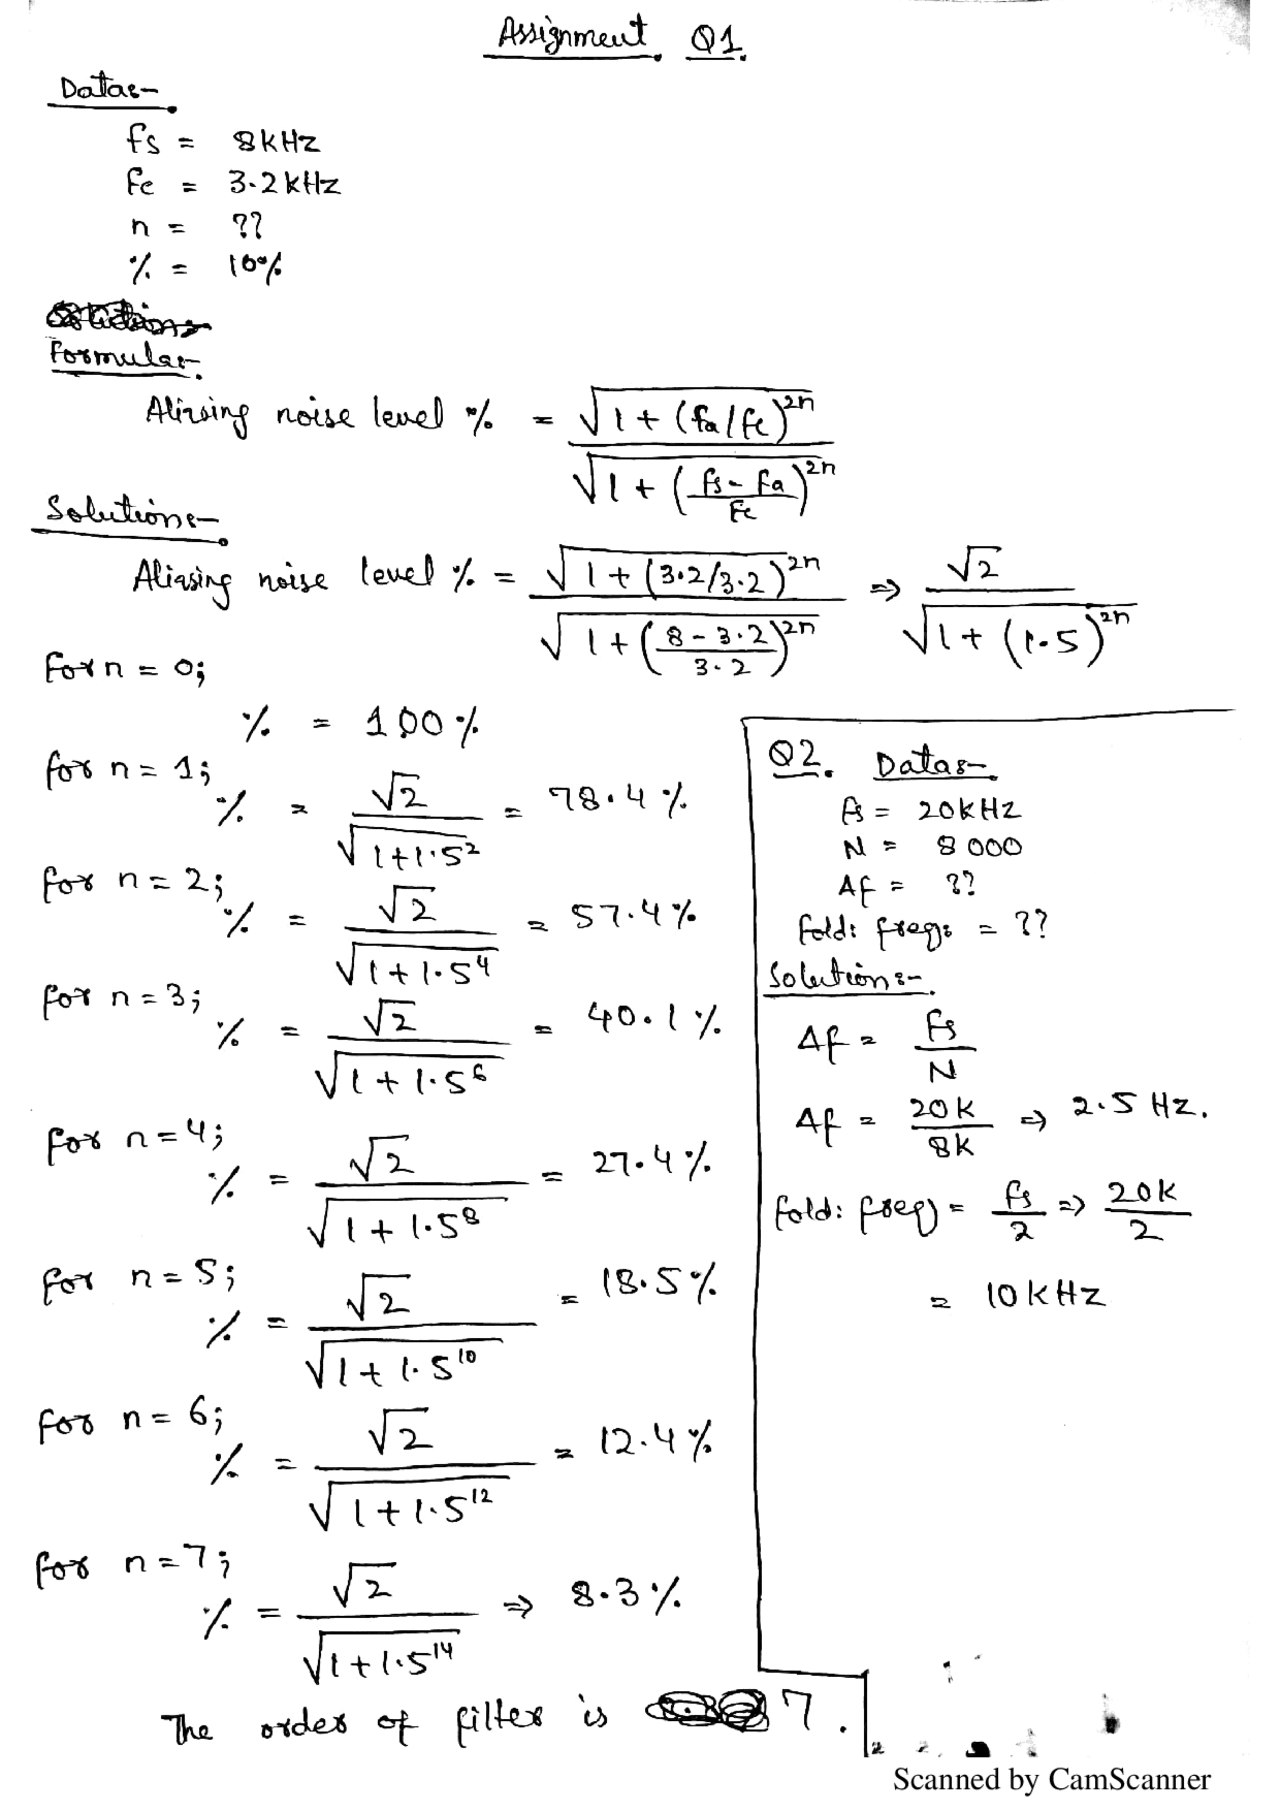 Assignment Q1.
Data:-
fs = 8kHz
fc = 3.2kHz
n = ??
% = 10%
Formula:-
Aliasing noise level % = √(1 + (fa/fc)^2n) / √(1 + ((fs - fa)/fc)^2n)
Solution:-
Aliasing noise level % = √(1 + (3.2/3.2)^2n) / √(1 + ((8 - 3.2)/3.2)^2n) ⇒ √2 / √(1 + (1.5)^2n)
for n = 0;
% = 100%
for n = 1;
% = √2 / √(1+1.5^2) = 78.4%
for n = 2;
% = √2 / √(1+1.5^4) = 57.4%
for n = 3;
% = √2 / √(1+1.5^6) = 40.1%
for n = 4;
% = √2 / √(1+1.5^8) = 27.4%
for n = 5;
% = √2 / √(1+1.5^10) = 18.5%
for n = 6;
% = √2 / √(1+1.5^12) = 12.4%
for n = 7;
% = √2 / √(1+1.5^14) ⇒ 8.3%
The order of filter is 7.
Q2. Data:-
fs = 20kHz
N = 8000
Δf = ??
fold: freq: = ??
Solution:-
Δf = fs / N
Δf = 20k / 8k ⇒ 2.5 Hz.
fold: freq) = fs / 2 ⇒ 20k / 2
= 10kHz
Scanned by CamScanner